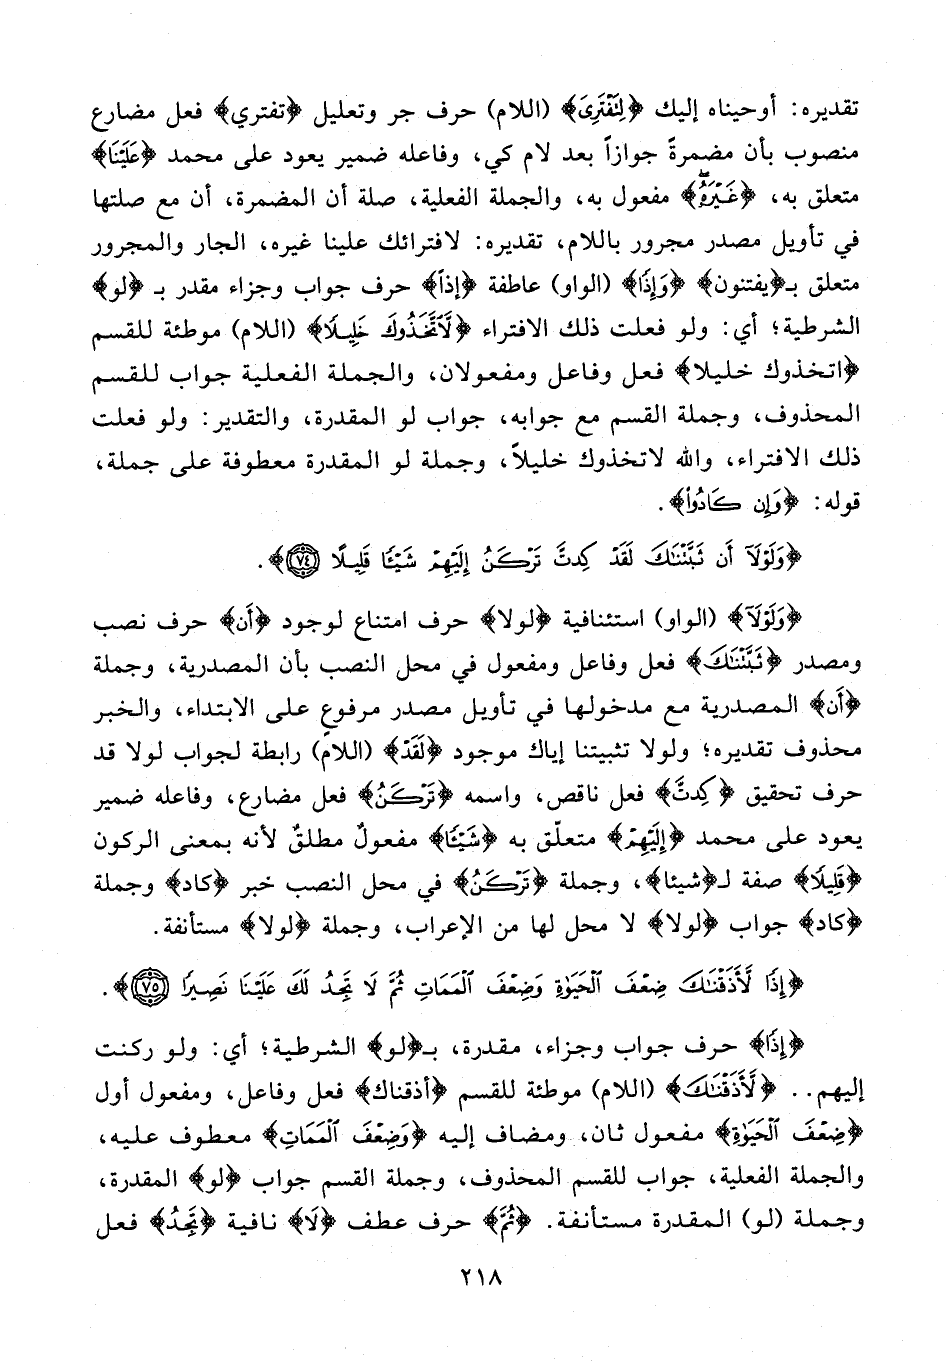 تقديره: أوحيناه إليك ﴿لِتَفْتَرِىَ﴾ (اللام) حرف جر وتعليل ﴿تفتري﴾ فعل مضارع
منصوب بأن مضمرةً جوازاً بعد لام كي، وفاعله ضمير يعود على محمد ﴿عَلَيْنَا﴾
متعلق به، ﴿غَيْرَهُۥ﴾ مفعول به، والجملة الفعلية، صلة أن المضمرة، أن مع صلتها
في تأويل مصدر مجرور باللام، تقديره: لافترائك علينا غيره، الجار والمجرور
متعلق بـ﴿يفتنون﴾ ﴿وَإِذًا﴾ (الواو) عاطفة ﴿إذاً﴾ حرف جواب وجزاء مقدر بـ ﴿لو﴾
الشرطية؛ أي: ولو فعلت ذلك الافتراء ﴿لَّاتَّخَذُوكَ خَلِيلًا﴾ (اللام) موطئة للقسم
﴿اتخذوك خليلا﴾ فعل وفاعل ومفعولان، والجملة الفعلية جواب للقسم
المحذوف، وجملة القسم مع جوابه، جواب لو المقدرة، والتقدير: ولو فعلت
ذلك الافتراء، والله لاتخذوك خليلاً، وجملة لو المقدرة معطوفة على جملة،
قوله: ﴿وَإِن كَادُوا۟﴾.
﴿وَلَوْلَآ أَن ثَبَّتْنَٰكَ لَقَدْ كِدتَّ تَرْكَنُ إِلَيْهِمْ شَيْـًٔا قَلِيلًا ٧٤﴾.
﴿وَلَوْلَآ﴾ (الواو) استئنافية ﴿لولا﴾ حرف امتناع لوجود ﴿أَن﴾ حرف نصب
ومصدر ﴿ثَبَّتْنَٰكَ﴾ فعل وفاعل ومفعول في محل النصب بأن المصدرية، وجملة
﴿أَن﴾ المصدرية مع مدخولها في تأويل مصدر مرفوع على الابتداء، والخبر
محذوف تقديره؛ ولولا تثبيتنا إياك موجود ﴿لَقَدْ﴾ (اللام) رابطة لجواب لولا قد
حرف تحقيق ﴿كِدتَّ﴾ فعل ناقص، واسمه ﴿تَرْكَنُ﴾ فعل مضارع، وفاعله ضمير
يعود على محمد ﴿إِلَيْهِمْ﴾ متعلّق به ﴿شَيْـًٔا﴾ مفعولٌ مطلقٌ لأنه بمعنى الركون
﴿قَلِيلًا﴾ صفة لـ﴿شيئا﴾، وجملة ﴿تَرْكَنُ﴾ في محل النصب خبر ﴿كاد﴾ وجملة
﴿كاد﴾ جواب ﴿لولا﴾ لا محل لها من الإعراب، وجملة ﴿لولا﴾ مستأنفة.
﴿إِذًا لَّأَذَقْنَٰكَ ضِعْفَ ٱلْحَيَوٰةِ وَضِعْفَ ٱلْمَمَاتِ ثُمَّ لَا تَجِدُ لَكَ عَلَيْنَا نَصِيرًا ٧٥﴾.
﴿إِذًا﴾ حرف جواب وجزاء، مقدرة، بـ﴿لو﴾ الشرطية؛ أي: ولو ركنت
إليهم.. ﴿لَّأَذَقْنَٰكَ﴾ (اللام) موطئة للقسم ﴿أذقناك﴾ فعل وفاعل، ومفعول أول
﴿ضِعْفَ ٱلْحَيَوٰةِ﴾ مفعول ثان، ومضاف إليه ﴿وَضِعْفَ ٱلْمَمَاتِ﴾ معطوف عليه،
والجملة الفعلية، جواب للقسم المحذوف، وجملة القسم جواب ﴿لو﴾ المقدرة،
وجملة (لو) المقدرة مستأنفة. ﴿ثُمَّ﴾ حرف عطف ﴿لَا﴾ نافية ﴿تَجِدُ﴾ فعل
٢١٨